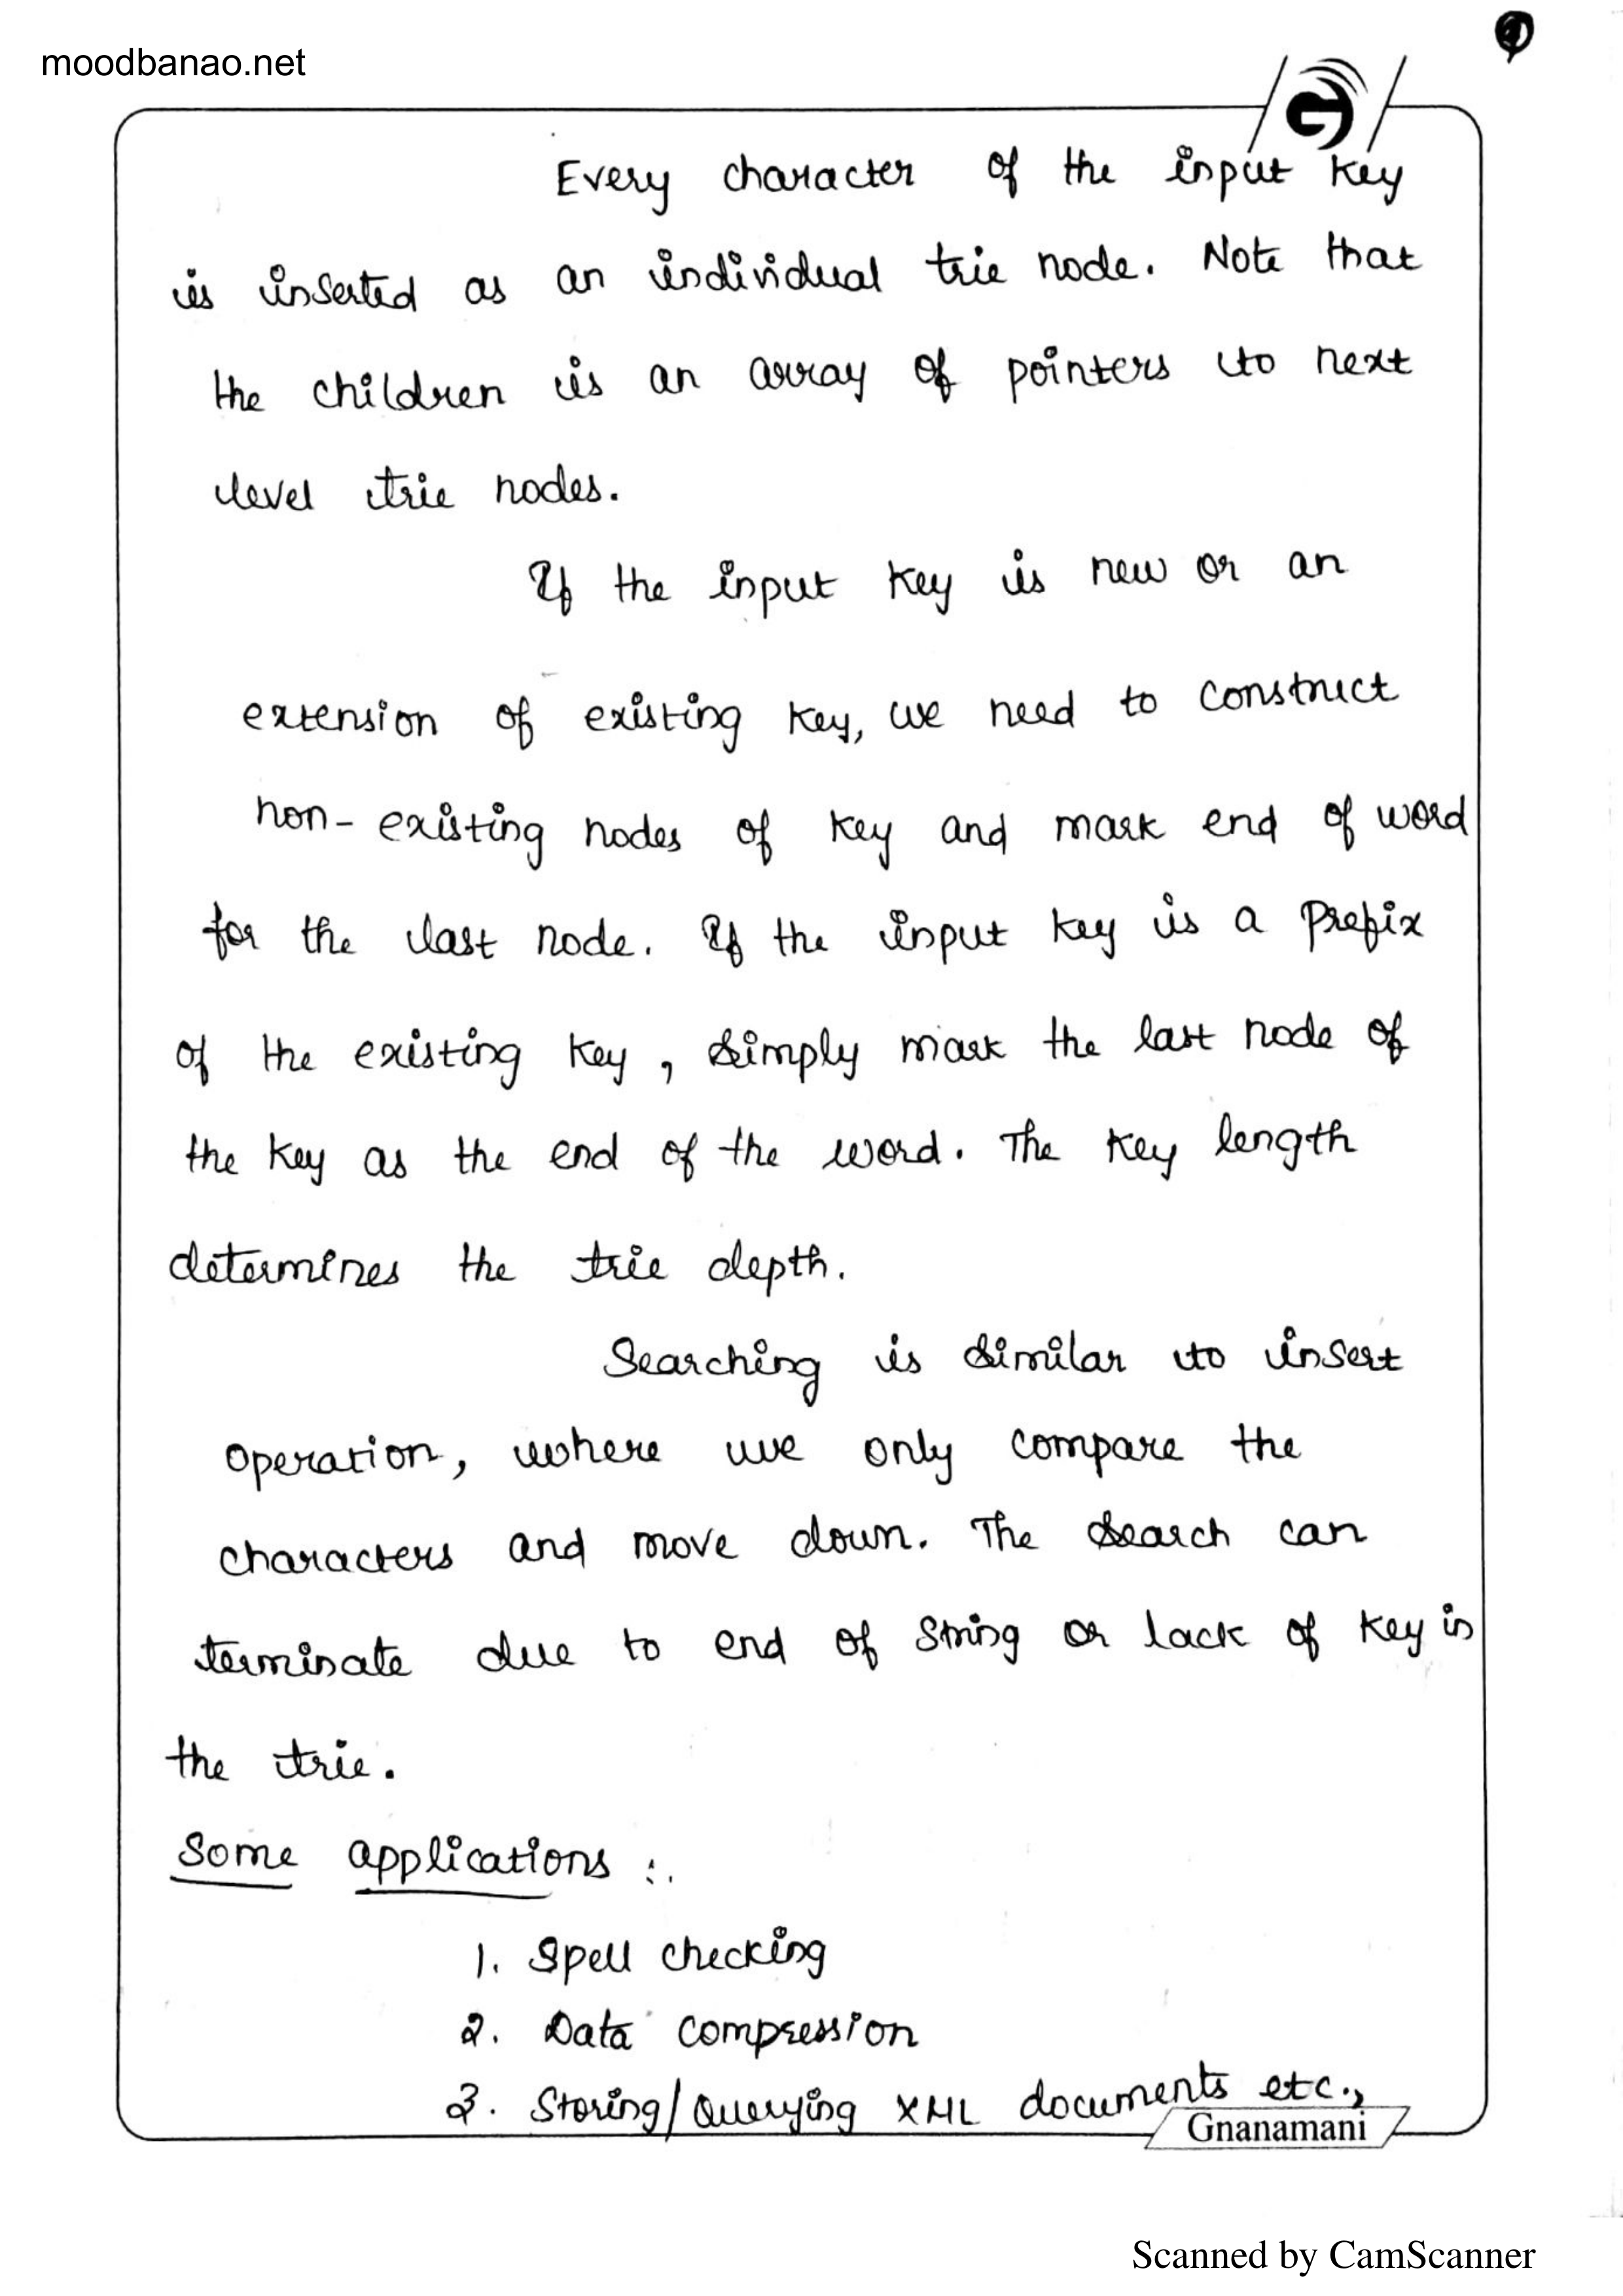 moodbanao.net
Every character of the input key
is inserted as an individual trie node. Note that
the children is an array of pointers to next
level trie nodes.
If the input key is new or an
extension of existing key, we need to construct
non-existing nodes of key and mark end of word
for the last node. If the input key is a prefix
of the existing key, simply mark the last node of
the key as the end of the word. The key length
determines the trie depth.
Searching is similar to insert
operation, where we only compare the
characters and move down. The search can
terminate due to end of string or lack of key in
the trie.
Some applications :.
1. Spell checking
2. Data compression
3. Storing/Querying XML documents etc.,
Gnanamani
Scanned by CamScanner